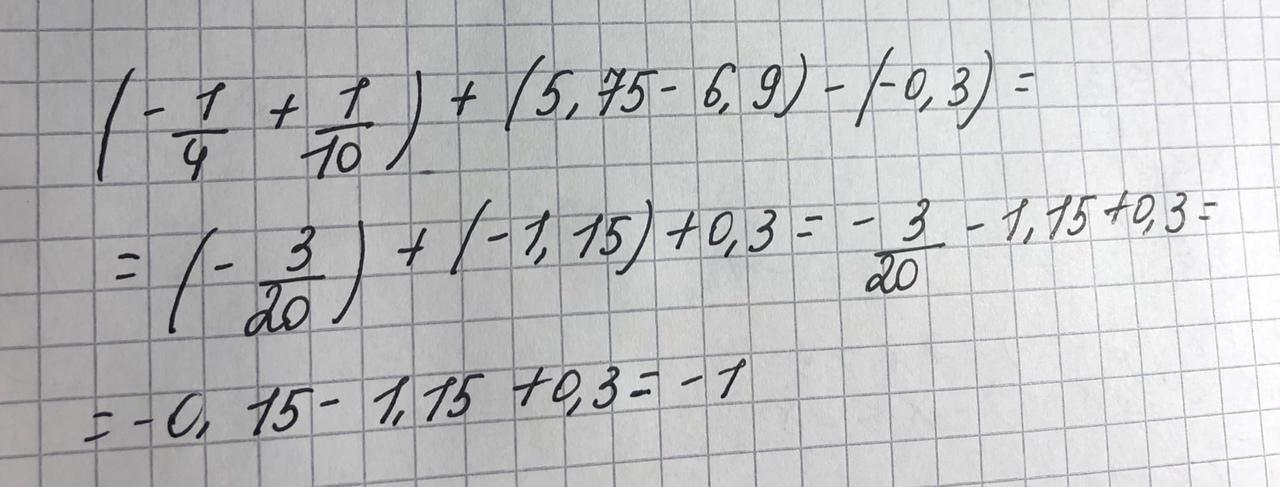 (-1/4 + 1/10) + (5,75 - 6,9) - (-0,3) =
= (-3/20) + (-1,15) + 0,3 = -3/20 - 1,15 + 0,3 =
= -0,15 - 1,15 + 0,3 = -1